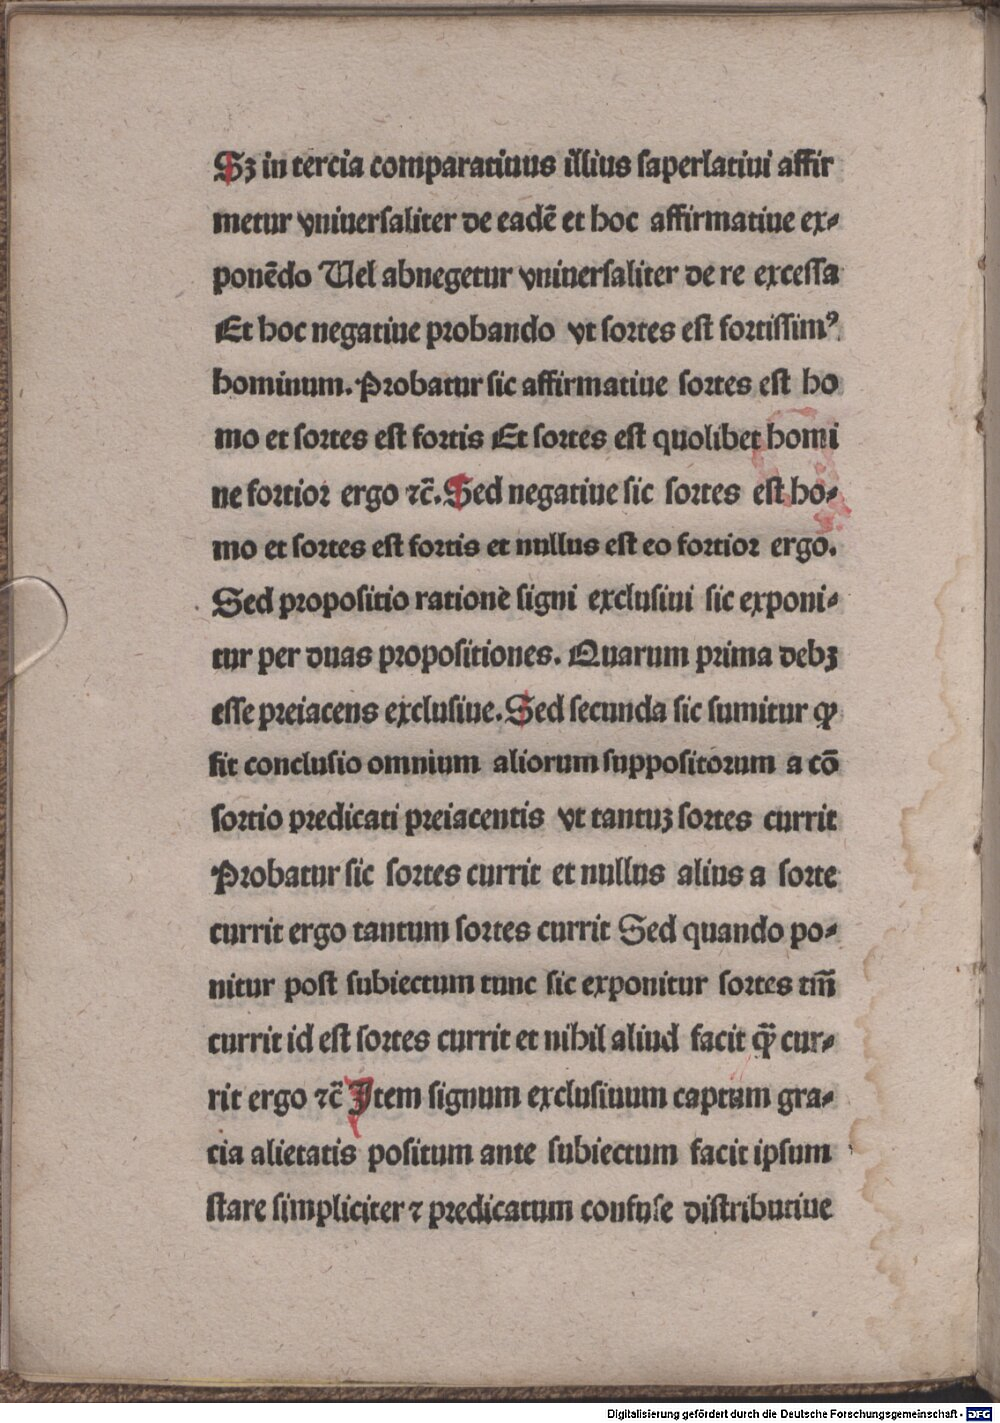 Sꝫ in tercia comparatiuus illius saperlatiui affir
metur vniuersaliter de eadē et hoc affirmatiue ex⸗
ponēdo Uel abnegetur vniuersaliter de re excessa
Et hoc negatiue probando vt sortes est fortissimꝰ
hominum. Probatur sic affirmatiue sortes est ho
mo et sortes est fortis Et sortes est quolibet homi
ne fortior ergo ⁊c̄. Sed negatiue sic sortes est ho⸗
mo et sortes est fortis et nullus est eo fortior ergo.
Sed propositio rationē signi exclusiui sic exponi⸗
tur per duas propositiones. Quarum prima debꝫ
esse preiacens exclusiue. Sed secunda sic sumitur ꝙ
sit conclusio omnium aliorum suppositorum a cō
sortio predicati preiacentis vt tantuꝫ sortes currit
Probatur sic sortes currit et nullus alius a sorte
currit ergo tantum sortes currit Sed quando po⸗
nitur post subiectum tunc sic exponitur sortes tm̄
currit id est sortes currit et nihil aliud facit ꝙ̄ cur⸗
rit ergo ⁊c̄ Item signum exclusiuum captum gra⸗
cia alietatis positum ante subiectum facit ipsum
stare simpliciter ⁊ predicatum confuse distributiue
Digitalisierung gefördert durch die Deutsche Forschungsgemeinschaft - DFG